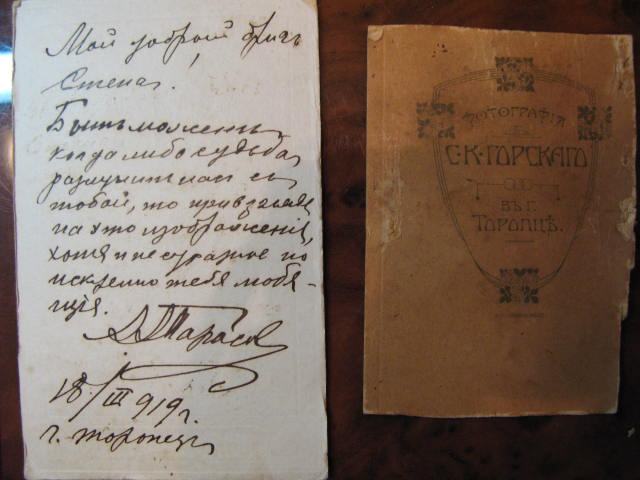 Мой добрый другъ,
Степа.
Быть можетъ
когда либо судьба
разлучитъ насъ съ
тобой, то при взгляде
на это изображение,
хотя и не страшное но
искренно тебя любя-
щія.
Тарасов
18/III 919 г.
г. Торопецъ
ФОТОГРАФІЯ
С.К.ГОРСКАГО
ВЪ Г.
ТОРОПЦѢ.